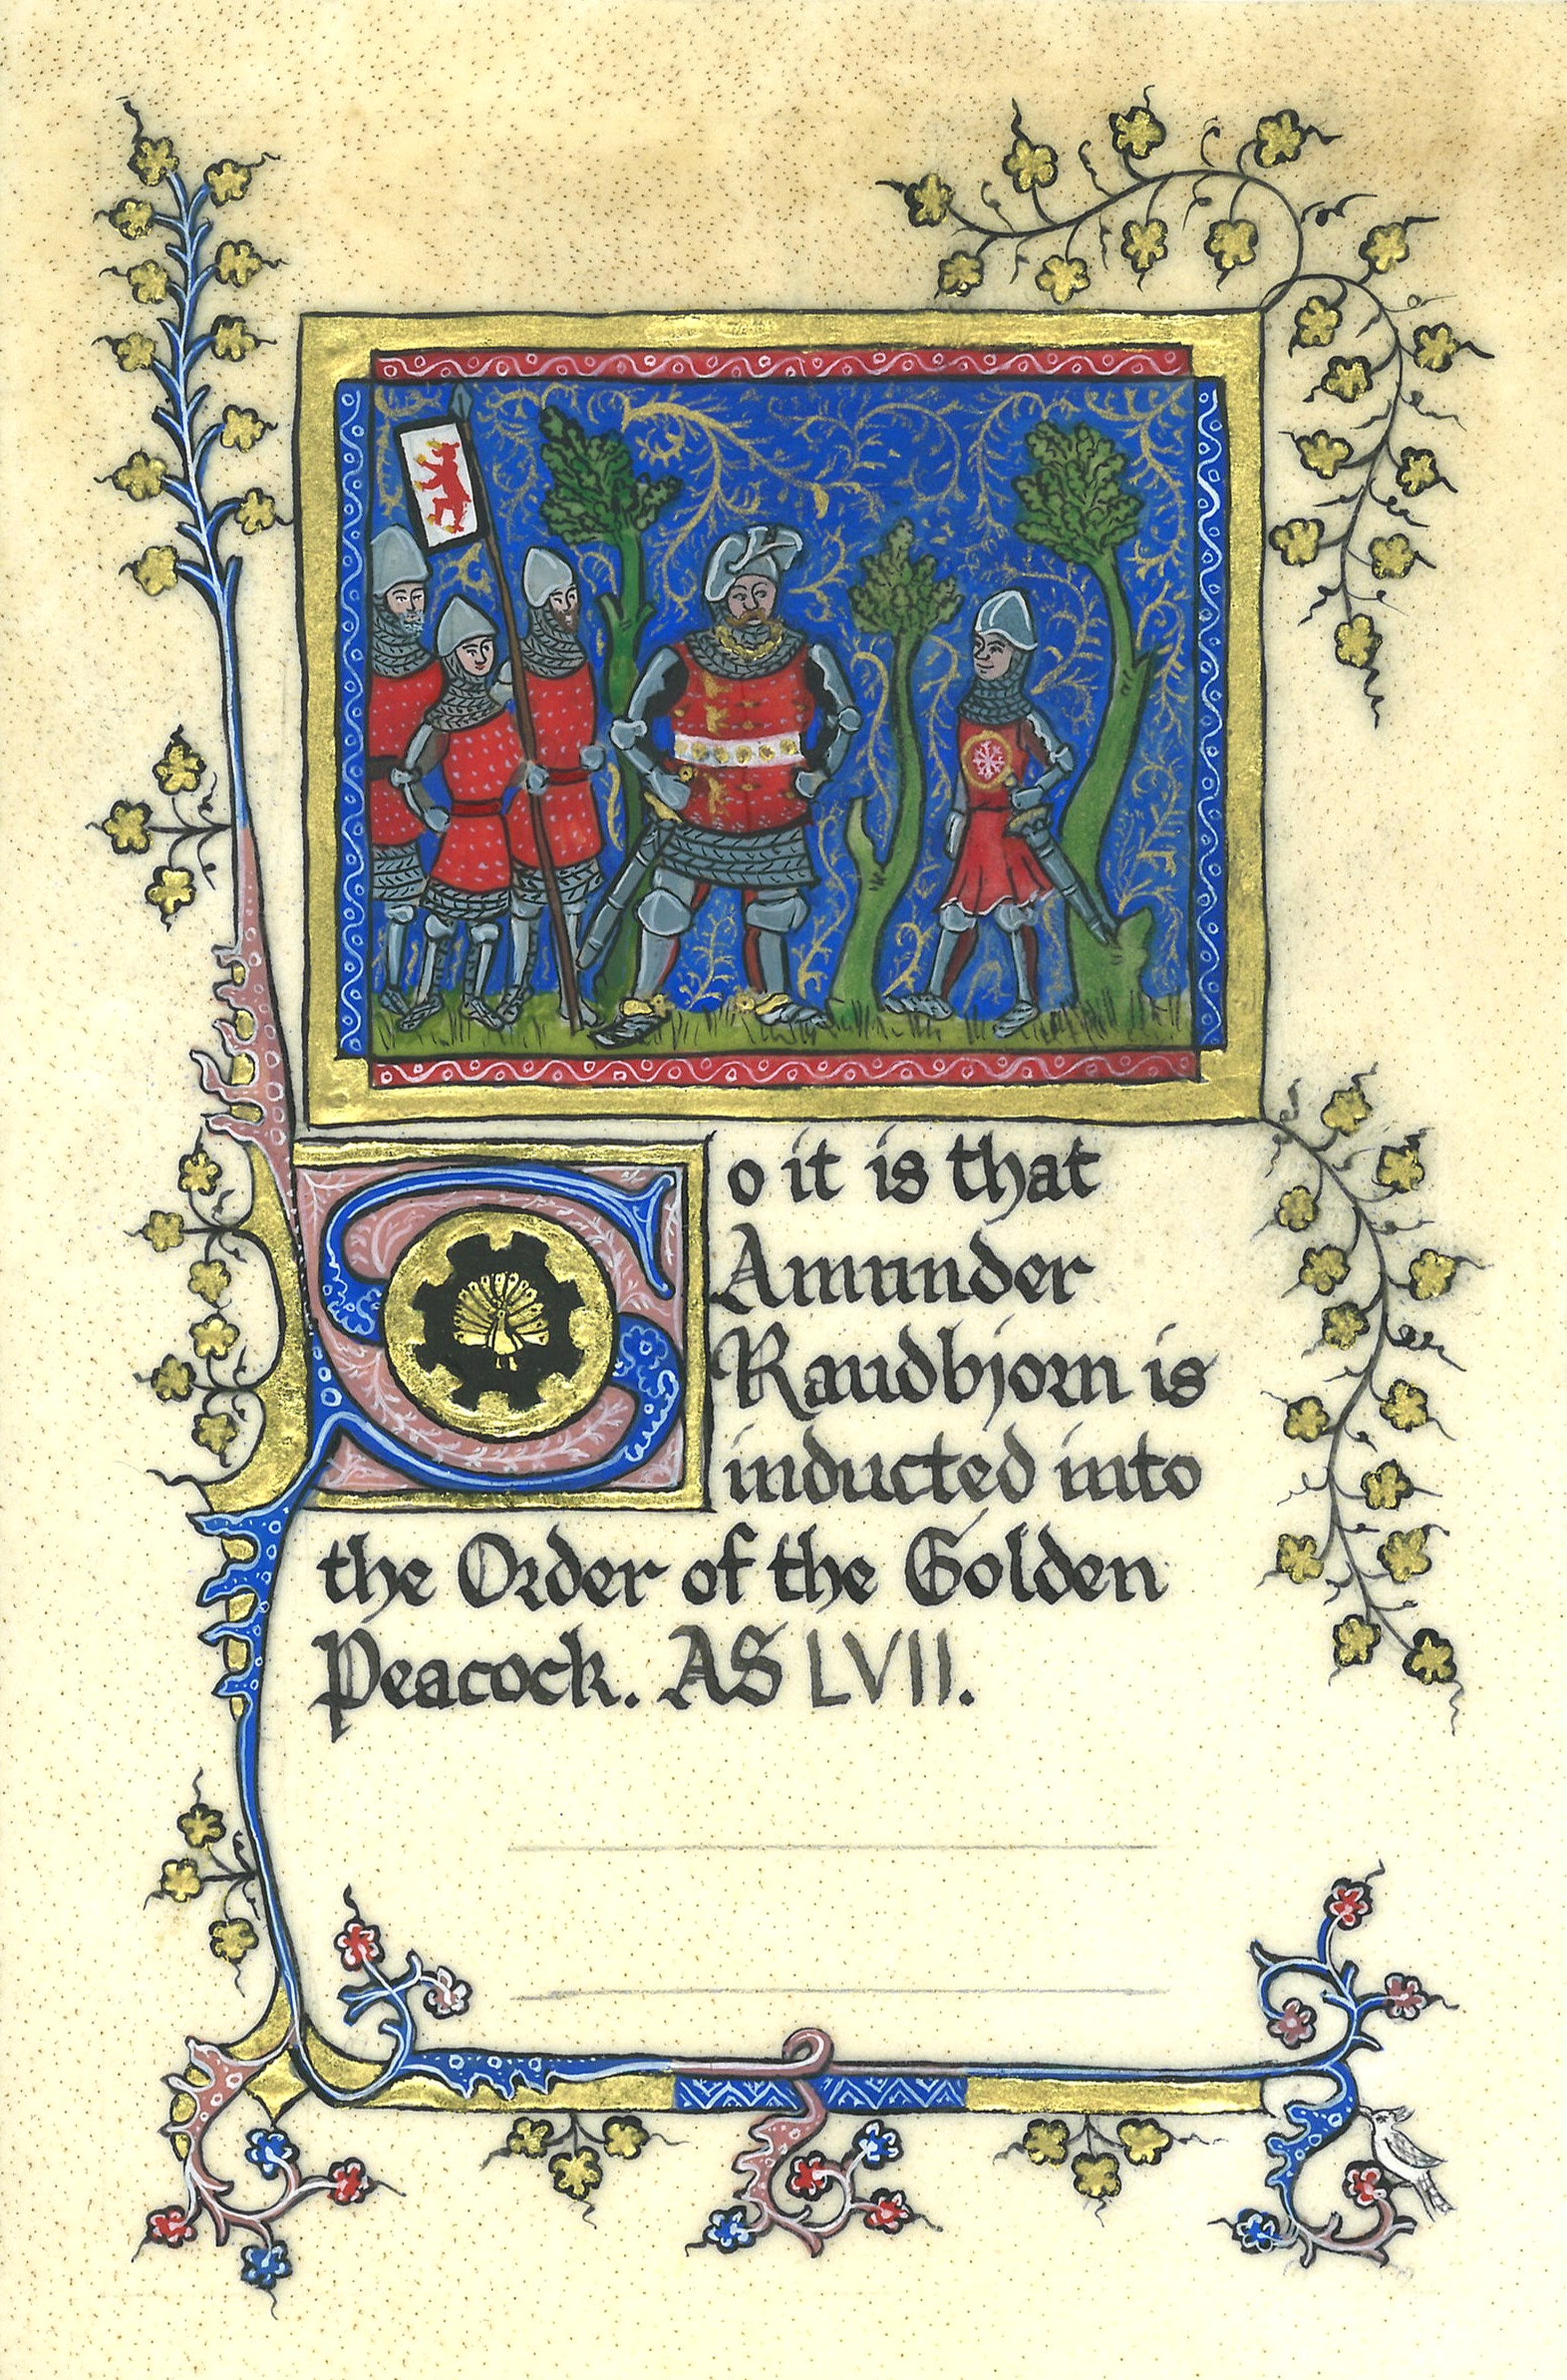 So it is that
Amunder
Raudbjorn is
inducted into
the Order of the Golden
Peacock. AS LVII.